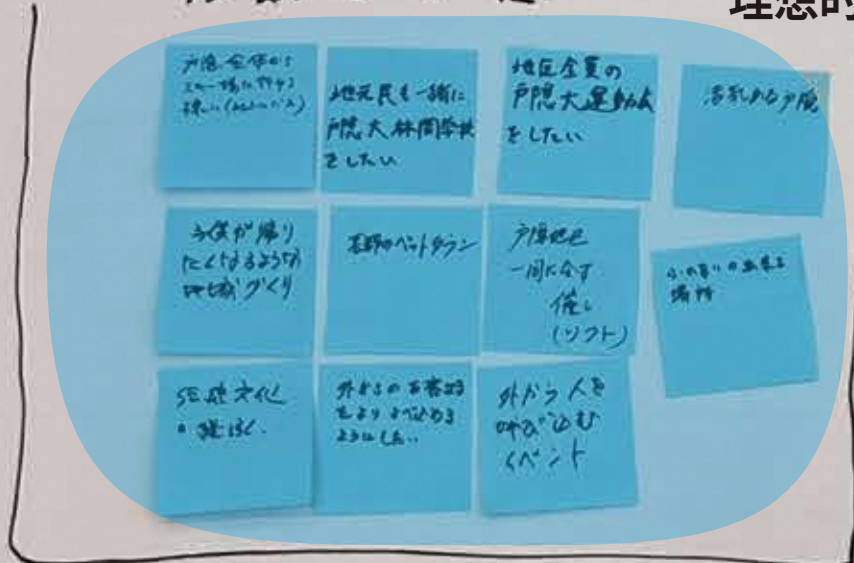 理想的
戸隠全体から
スキー場に行ける
地元民も一緒に
戸隠大林間学校
をしたい
地区全員の
戸隠大運動会
をしたい
活気ある戸隠
子供が帰り
たくなるような
地域づくり
長野のベットタウン
戸隠地区
一同に会す
催し
(ソフト)
の出来る
場所
伝統文化
の継承
外からのお客様
をより よび込める
ようにしたい
外から人を
呼び込む
イベント